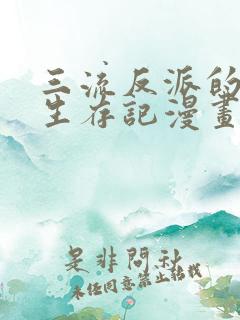 三流反派的
生存記漫畫
是非問秋
未经同意禁止转载